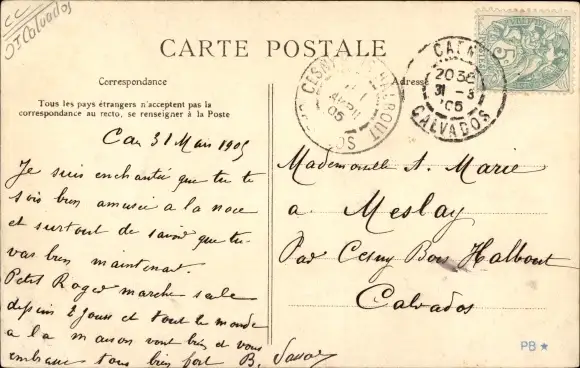 CC
Dt Calvados
CARTE POSTALE
Correspondance
Adresse
Tous les pays étrangers n'acceptent pas la
correspondance au recto, se renseigner à la Poste
CAEN
20 35
31 - 3
05
CALVADOS
CESNY-BOIS-HALBOUT
AVRIL
05
Caen 31 Mars 1905
Je suis enchantée que tu te
sois bien amusée a la noce
et surtout de savoir que tu
vas bien maintenant.
Petit Roger marche seule
depuis 2 jours et tout le monde
a la maison vont bien et vous
embrasse tous bien fort B.
Mademoiselle A. Marie
a Meslay
Par Cesny Bois Halbout
Calvados
PB ★